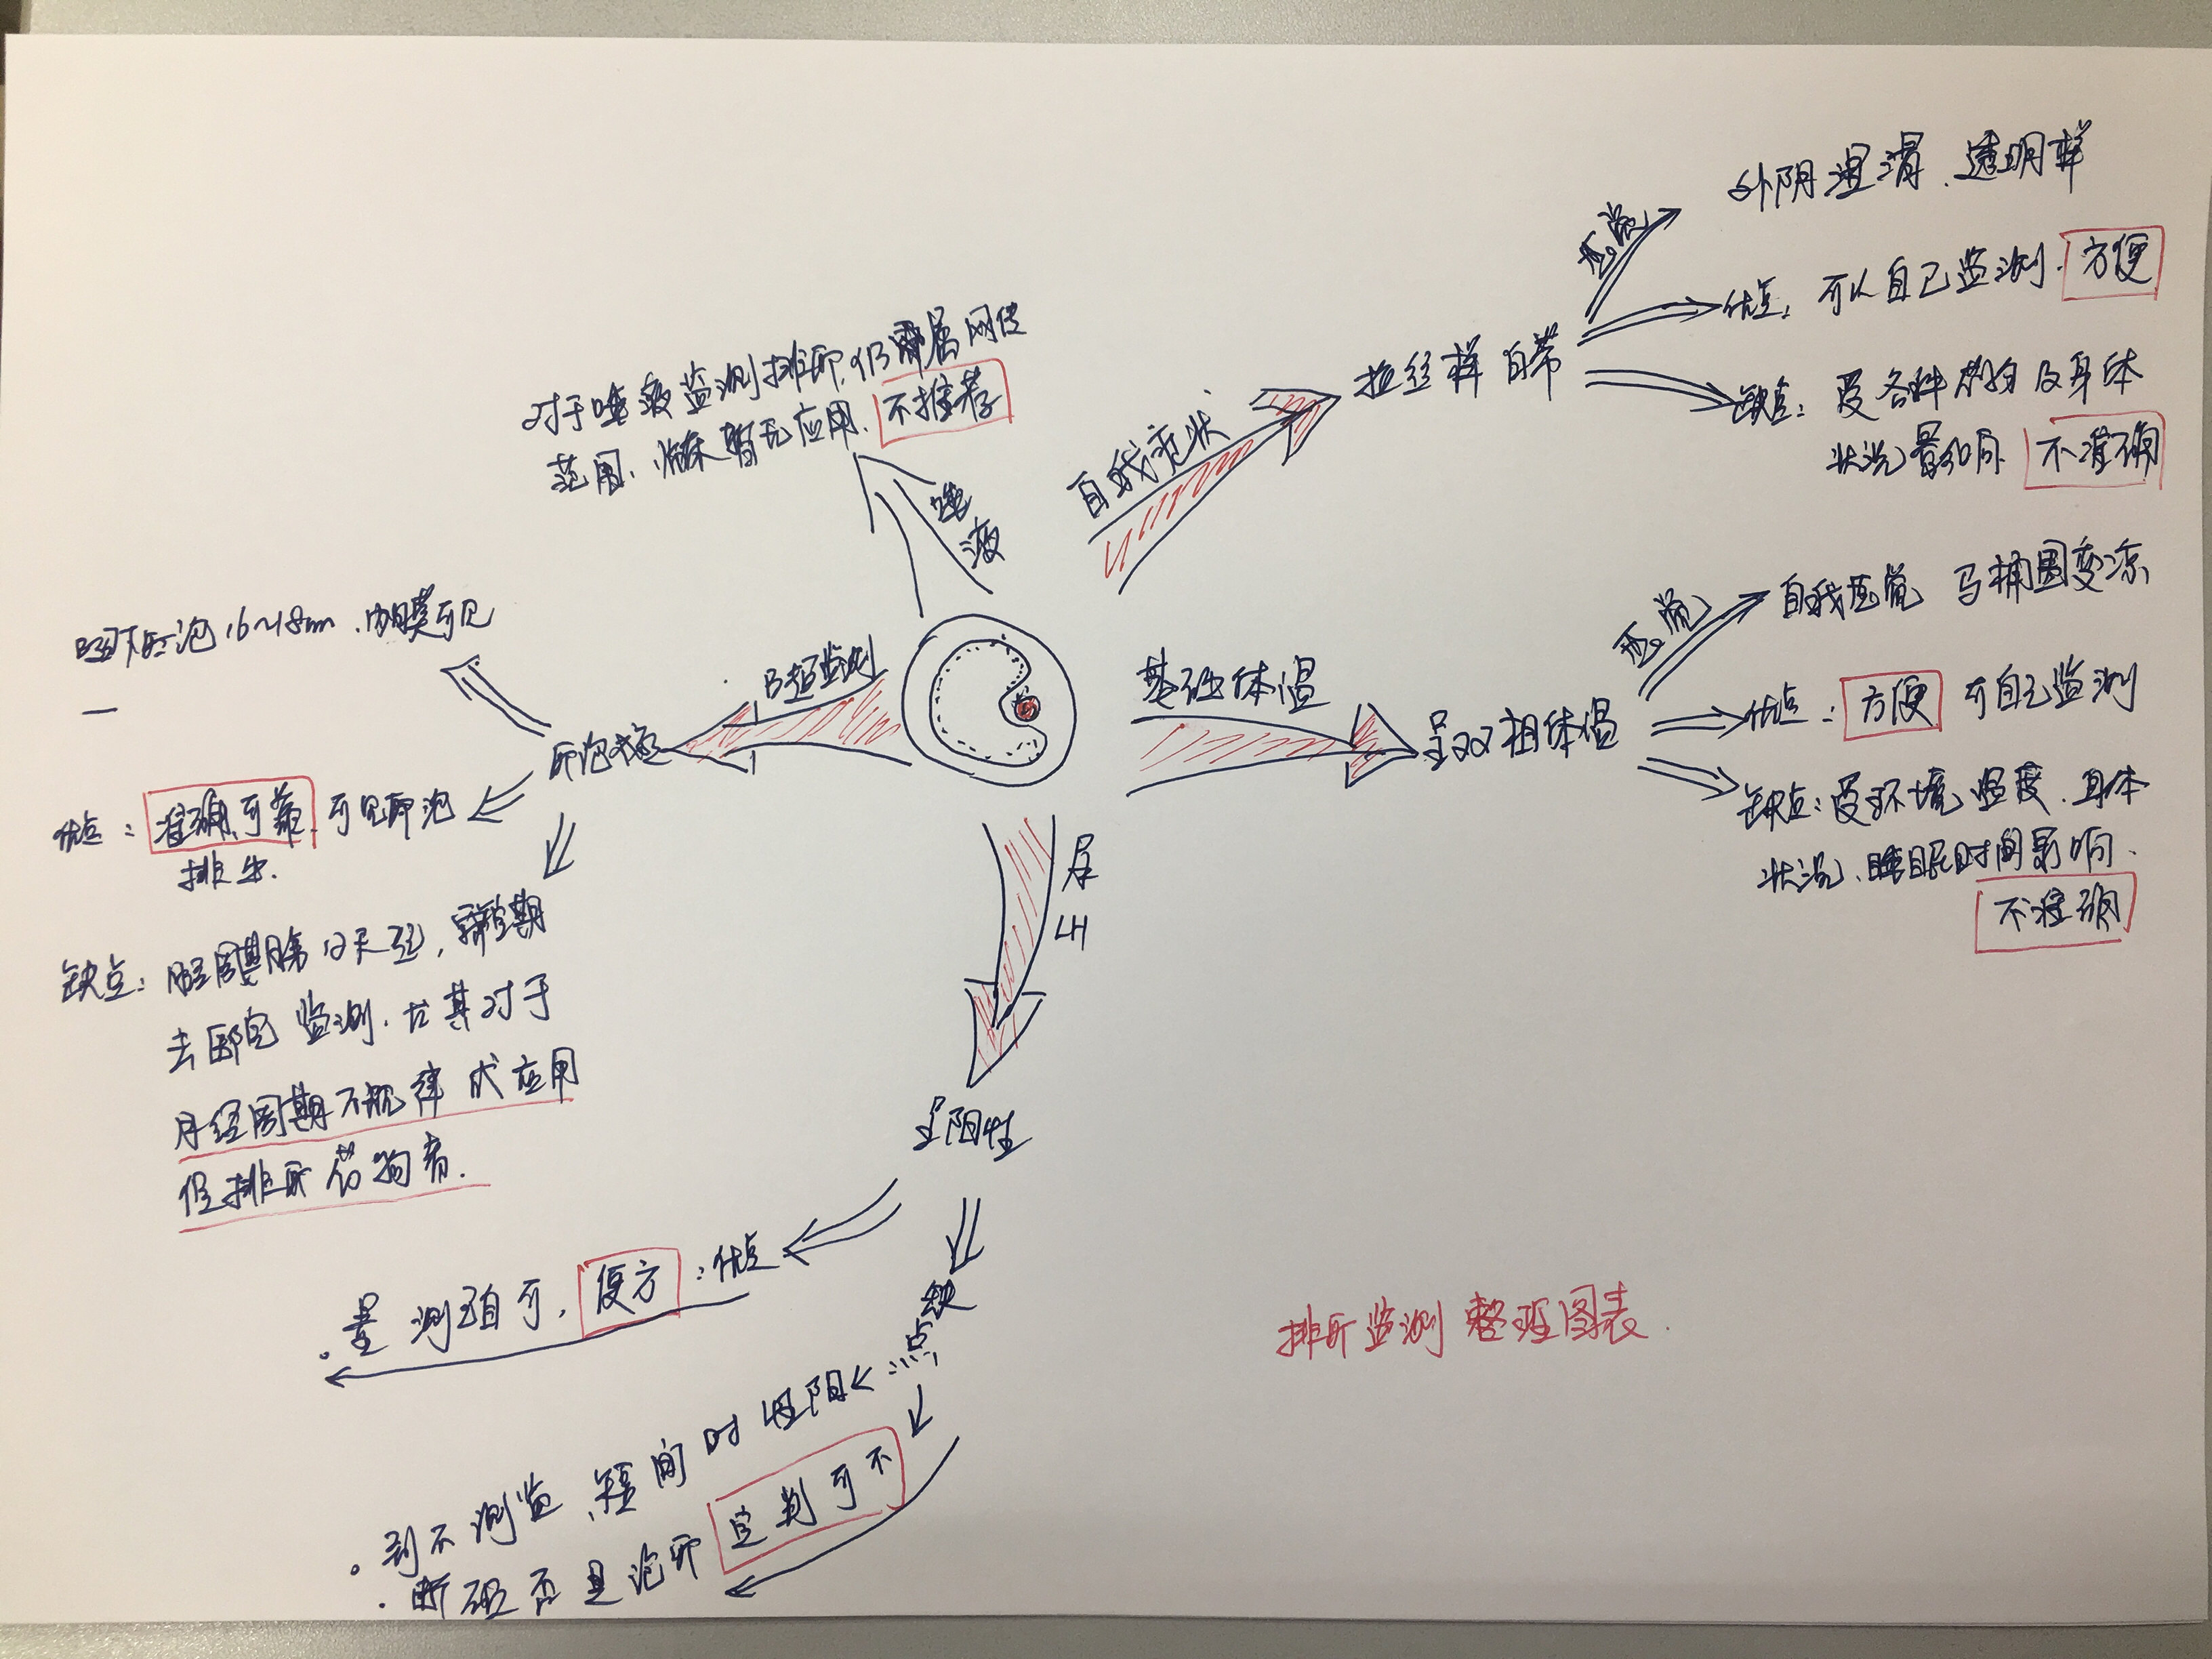 外阴湿滑、透明样
感觉
优点：可以自己监测、方便
拉丝样白带
缺点：受各种药物及身体
状况影响 不准确
自我症状
对于唾液监测排卵，仍属网传
范围、临床暂无应用、不推荐
唾液
自我感觉 马桶圈变凉
感觉
基础体温
呈双相体温
优点：方便 可自己监测
缺点：受环境温度、身体
状况、睡眠时间影响.
不准确
B超监测
卵泡 16~18mm、内膜可见
优点：准确、可靠、可见卵泡
排出.
缺点：月经周期第12天起，
去医院监测、尤其对于
月经周期不规律或应用
促排卵药物者.
尿
LH
呈阳性
优点：
方便，可自己测量.
缺点
阳性时间短，监测不到.
不可判定卵泡是否破
排卵监测整理图表.